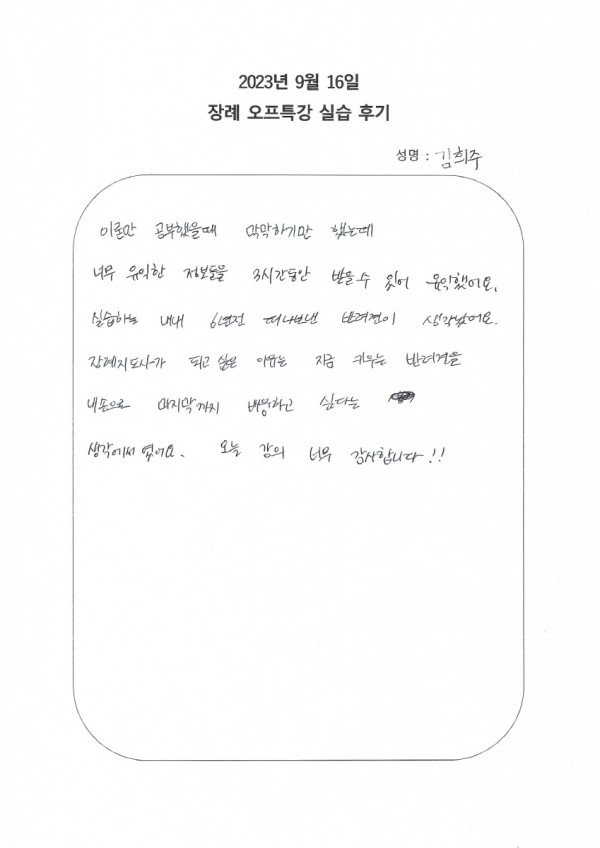 2023년 9월 16일
장례 오프특강 실습 후기
성명 : 김희주
이론만 공부했을때 막막하기만 했는데
너무 유익한 정보들을 3시간동안 받을수 있어 유익했어요.
실습하는 내내 6년전 떠나보낸 반려견이 생각났어요.
장례지도사가 되고 싶은 이유는 지금 키우는 반려견을
내손으로 마지막까지 배웅하고 싶다는
생각에서 였어요. 오늘 강의 너무 감사합니다!!